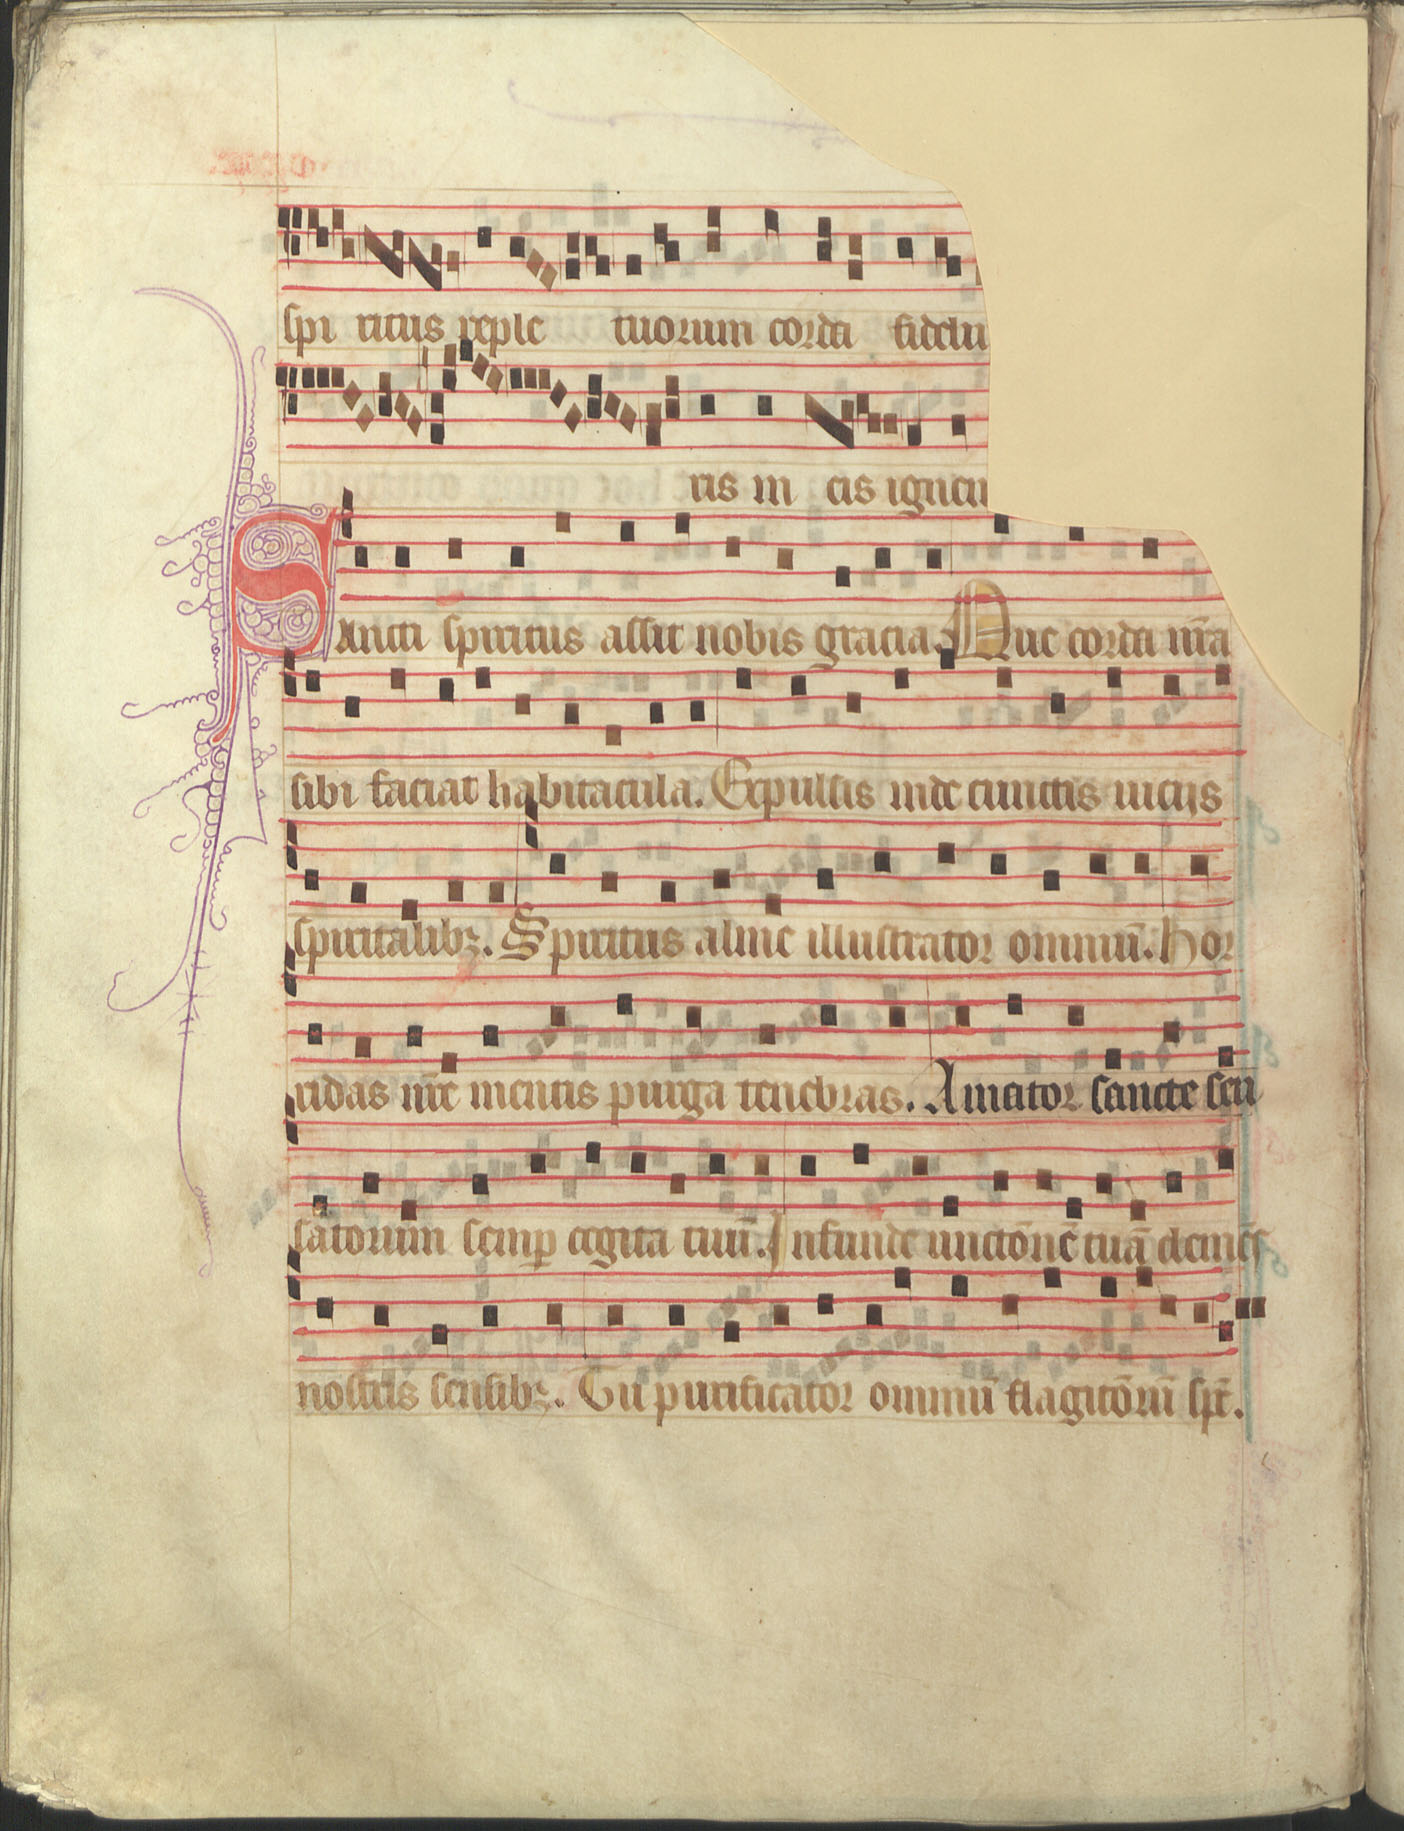 spi ritus reple tuorum corda fideliu
ris in eis ignem
Sancti spiritus assit nobis gracia. Que corda nr̄a
sibi faciat habitacula. Expulsis inde cunctis uicijs
spiritalibꝫ. Spiritus alme illustrator omniū. Hor
ridas nr̄e mentis purga tenebras. Amator sancte sen
satorum semꝑ cogita tuū. Infunde unctōnē tuā clemēs
nostris sensibꝫ. Tu purificator omniū flagitōrū sp̄c.